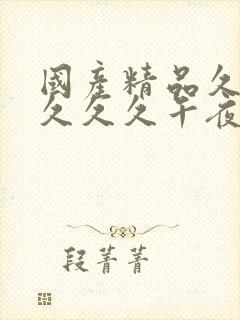 國產精品久
久久久午夜
段菁菁